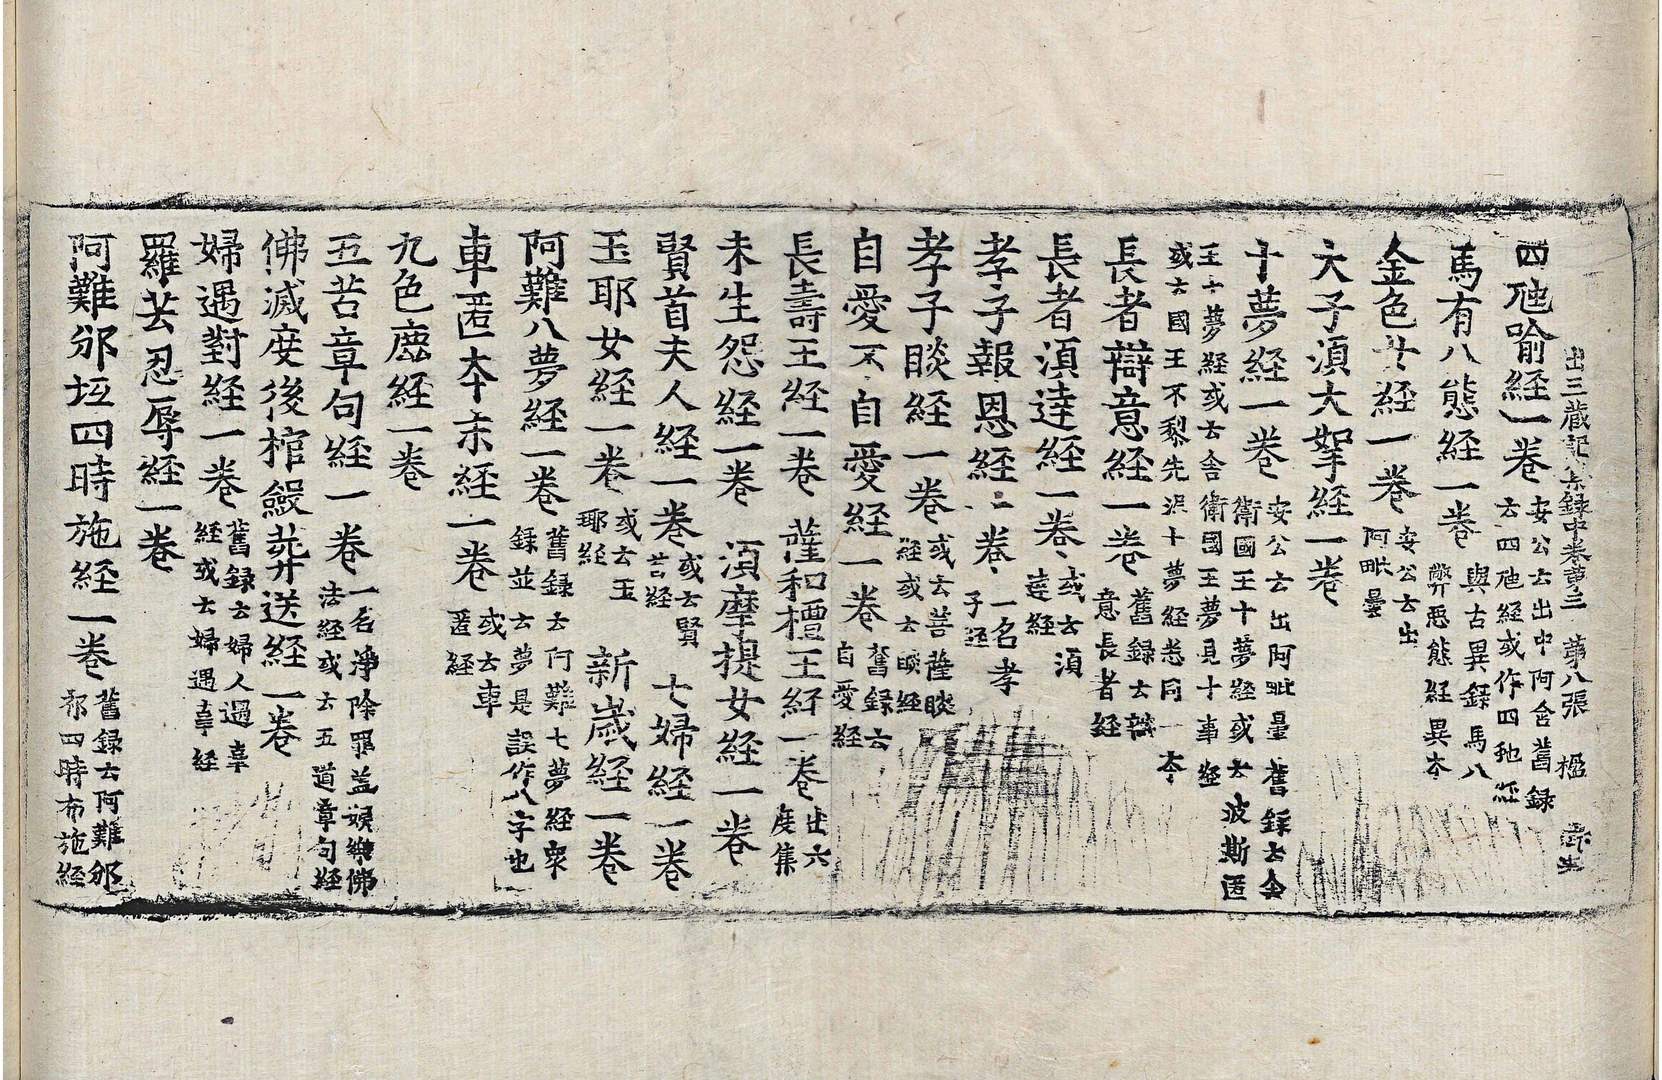 出三藏記集錄中卷第三 第八張 楹
四虵喻経一卷 安公云出中阿含舊録云四虵経或作四虵経
馬有八態経一卷 與古異錄馬八弊惡態経異夲
金色女経一卷 安公云出阿毗曇
太子湏大拏経一卷
十夢経一卷 安公云出阿毗曇舊錄云舎衛國王十夢経或云波斯匿
王十夢経或云舎衛國王夢見十事経或云國王不梨先泥十夢経悉同一夲
長者辯意経一卷 舊録云辯意長者経
長者湏達経一卷 或云湏達経
孝子報恩経一卷 一名孝子経
孝子睒経一卷 或云菩薩睒経或云睒経
自愛不自愛経一卷 舊録云自愛経
長壽王経一卷 薩和檀王経一卷 出六度集
未生怨経一卷 湏摩提女経一卷
賢首夫人経一卷 或云賢首経 七婦経一卷
玉耶女経一卷 或云玉耶経 新歲経一卷
阿難八夢経一卷 舊録云阿難七夢経衆録並云夢是誤作八字也
車匿夲末経一卷 或云車匿経
九色鹿経一卷
五苦章句経一卷 一名淨除罪盖娱樂佛法経或云五道章句経
佛滅度後棺斂葬送経一卷
婦遇對経一卷 舊録云婦人遇辜経或云婦遇辜経
羅芸忍辱経一卷
阿難邠坻四時施経一卷 舊録云阿難邠邠四時布施経